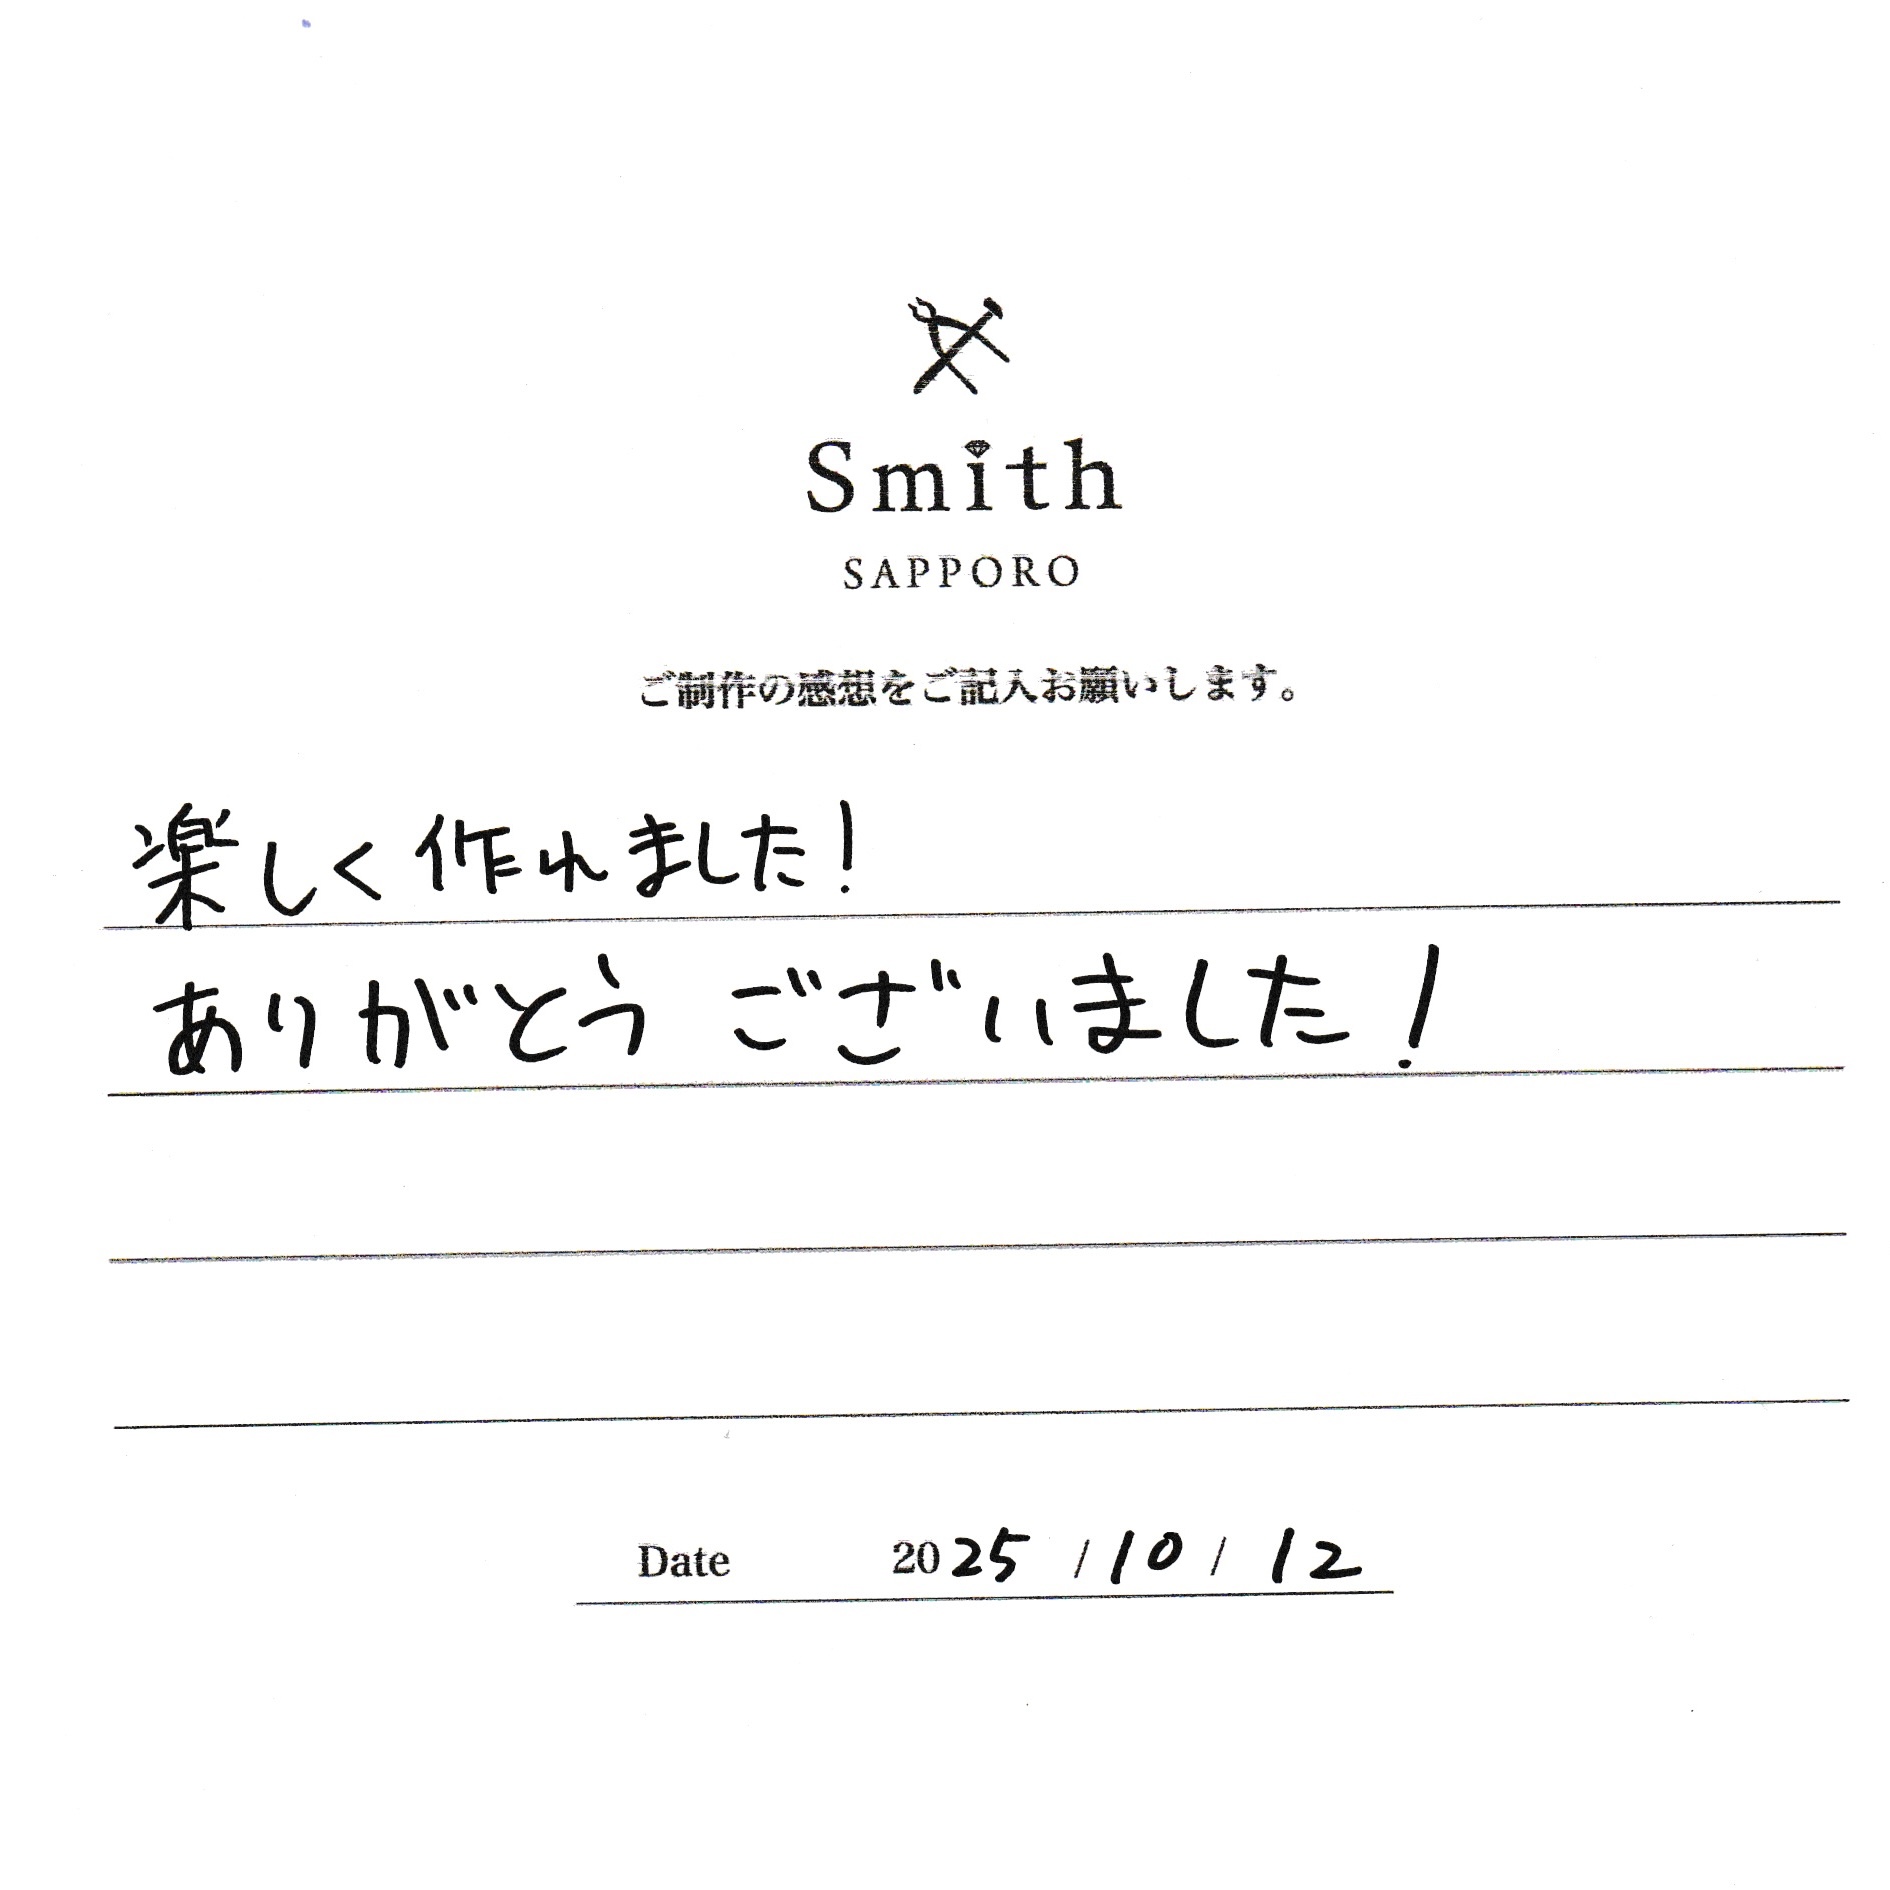 Smith
SAPPORO
ご制作の感想をご記入お願いします。
楽しく作れました!
ありがとうございました!
Date 2025 / 10 / 12